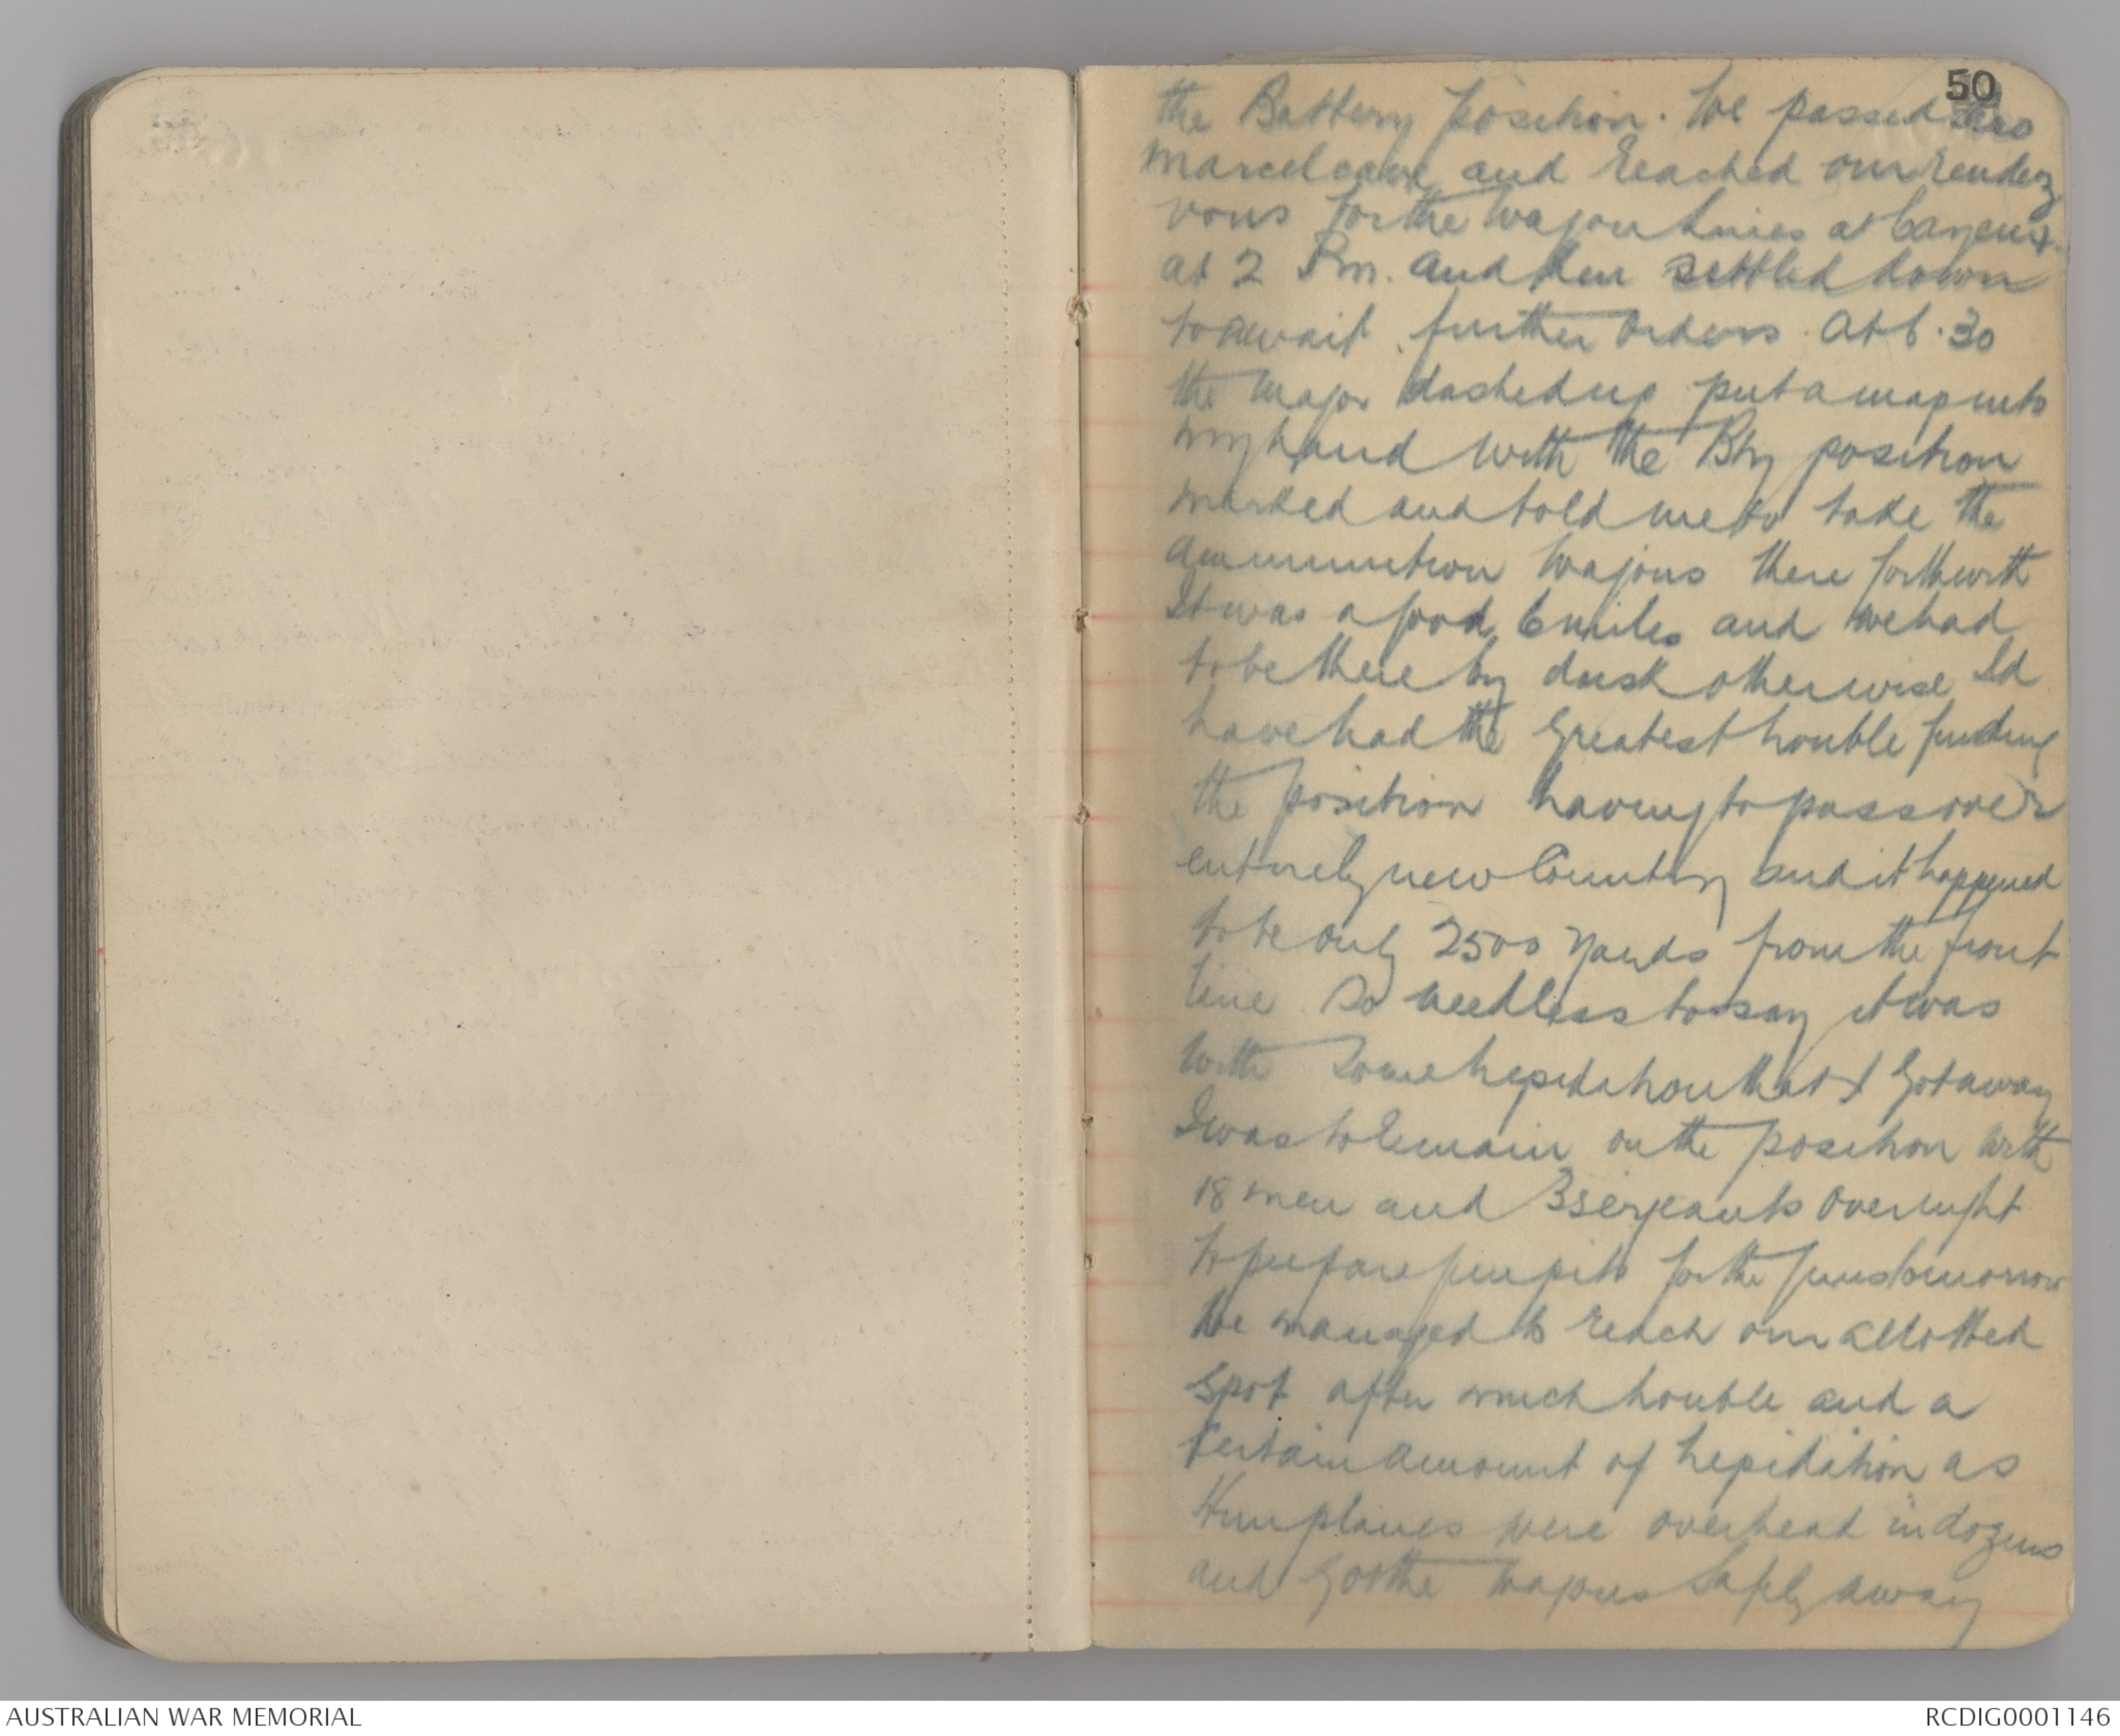 50
the Battery position. We passed thro
Marcelcave and reached our rendez
vous for the wagon lines at Cayeux.
at 2 Pm. and then settled down
to await further orders. At 6.30
the Major dashed up put a map into
my hand with the Bty position
marked and told me to take the
ammunition wagons there forthwith
It was a good 6 miles and we had
to be there by dusk otherwise Id
have had the greatest trouble finding
the position having to pass over
entirely new Country and it happened
to be only 2500 yards from the front
line. So needless to say it was
with some trepidation that I got away
I was to remain on the position with
18 men and 3 sergeants overnight
to prepare gunpits for the guns tomorrow
We managed to reach our allotted
spot after much trouble and a
certain amount of trepidation as
Hun planes were overhead in dozens
and got the wagons safely away
AUSTRALIAN WAR MEMORIAL
RCDIG0001146